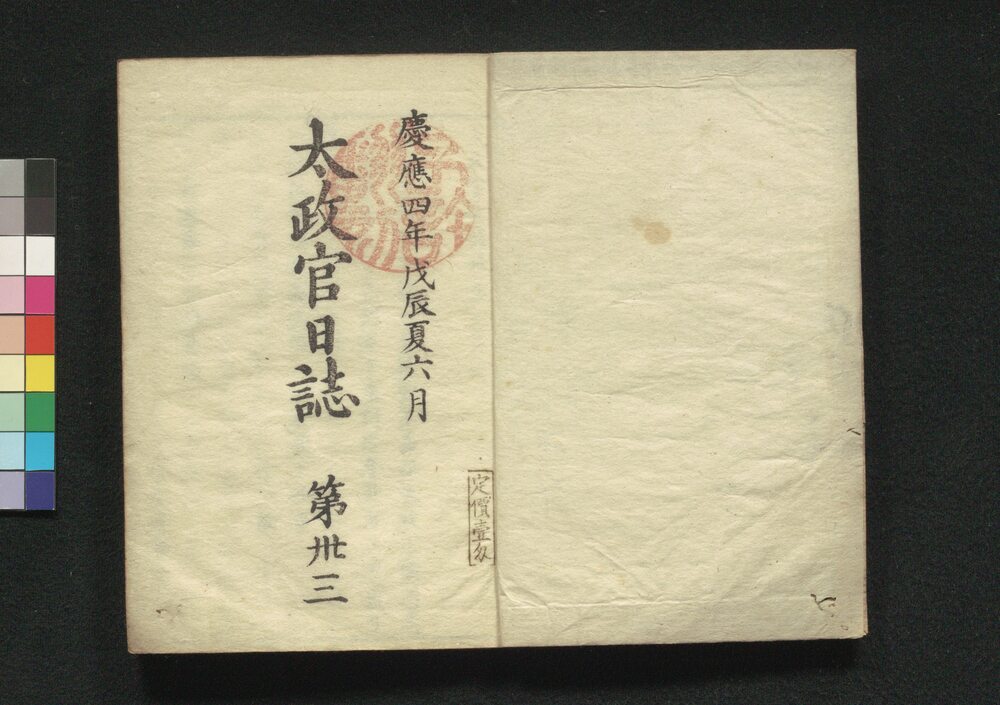 慶應四年戊辰夏六月
太政官日誌　第卅三
定價壹匁